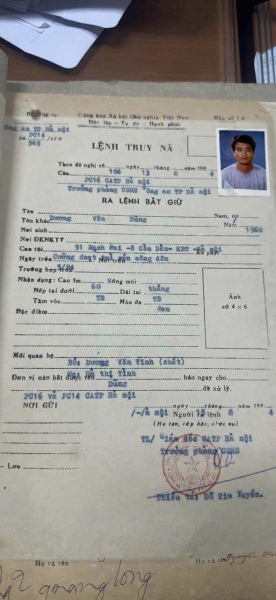 Cộng hòa Xã hội Chủ nghĩa Việt Nam
Độc lập - Tự do - Hạnh phúc
Công an TP Hà nội
PC14
565
LỆNH TRUY NÃ
Theo đề nghị số ngày tháng năm 199
Của 106 13 8 4
PC16 CATP Hà nội
Trưởng phòng CSHS Công an TP Hà nội
RA LỆNH BẮT GIỮ
Tên Nam, nữ
Tên khác Dương Văn Dũng Nam
Nơi sinh 1960
Nơi ĐKNKTT
Can tội
Ngày trốn Cưỡng đoạt tài sản công dân
Trường hợp trốn
Nhận dạng: Cao 1m Sống mũi
60 thẳng
Nếp tai dưới Dái tai
TB TB
Tầm vóc Màu da
đen
Đặc điểm
Ảnh
số 4 x 6
Mối quan hệ
Bố: Dương Văn Vinh (chết)
Mẹ: Hồ thị Tình
Đơn vị nào bắt được tên báo ngay cho
Dũng đã xử lý.
PC16 và PC14 CATP Hà nội
NƠI GỬI
ngày tháng năm 199
Người
(Họ tên, cấp bậc, chức vụ)
TL/ Giám đốc CATP Hà nội
Trưởng phòng CSHS
- Lưu
Thiếu tá: Đỗ Kim Tuyến.
Họ và tên
Họ và tên